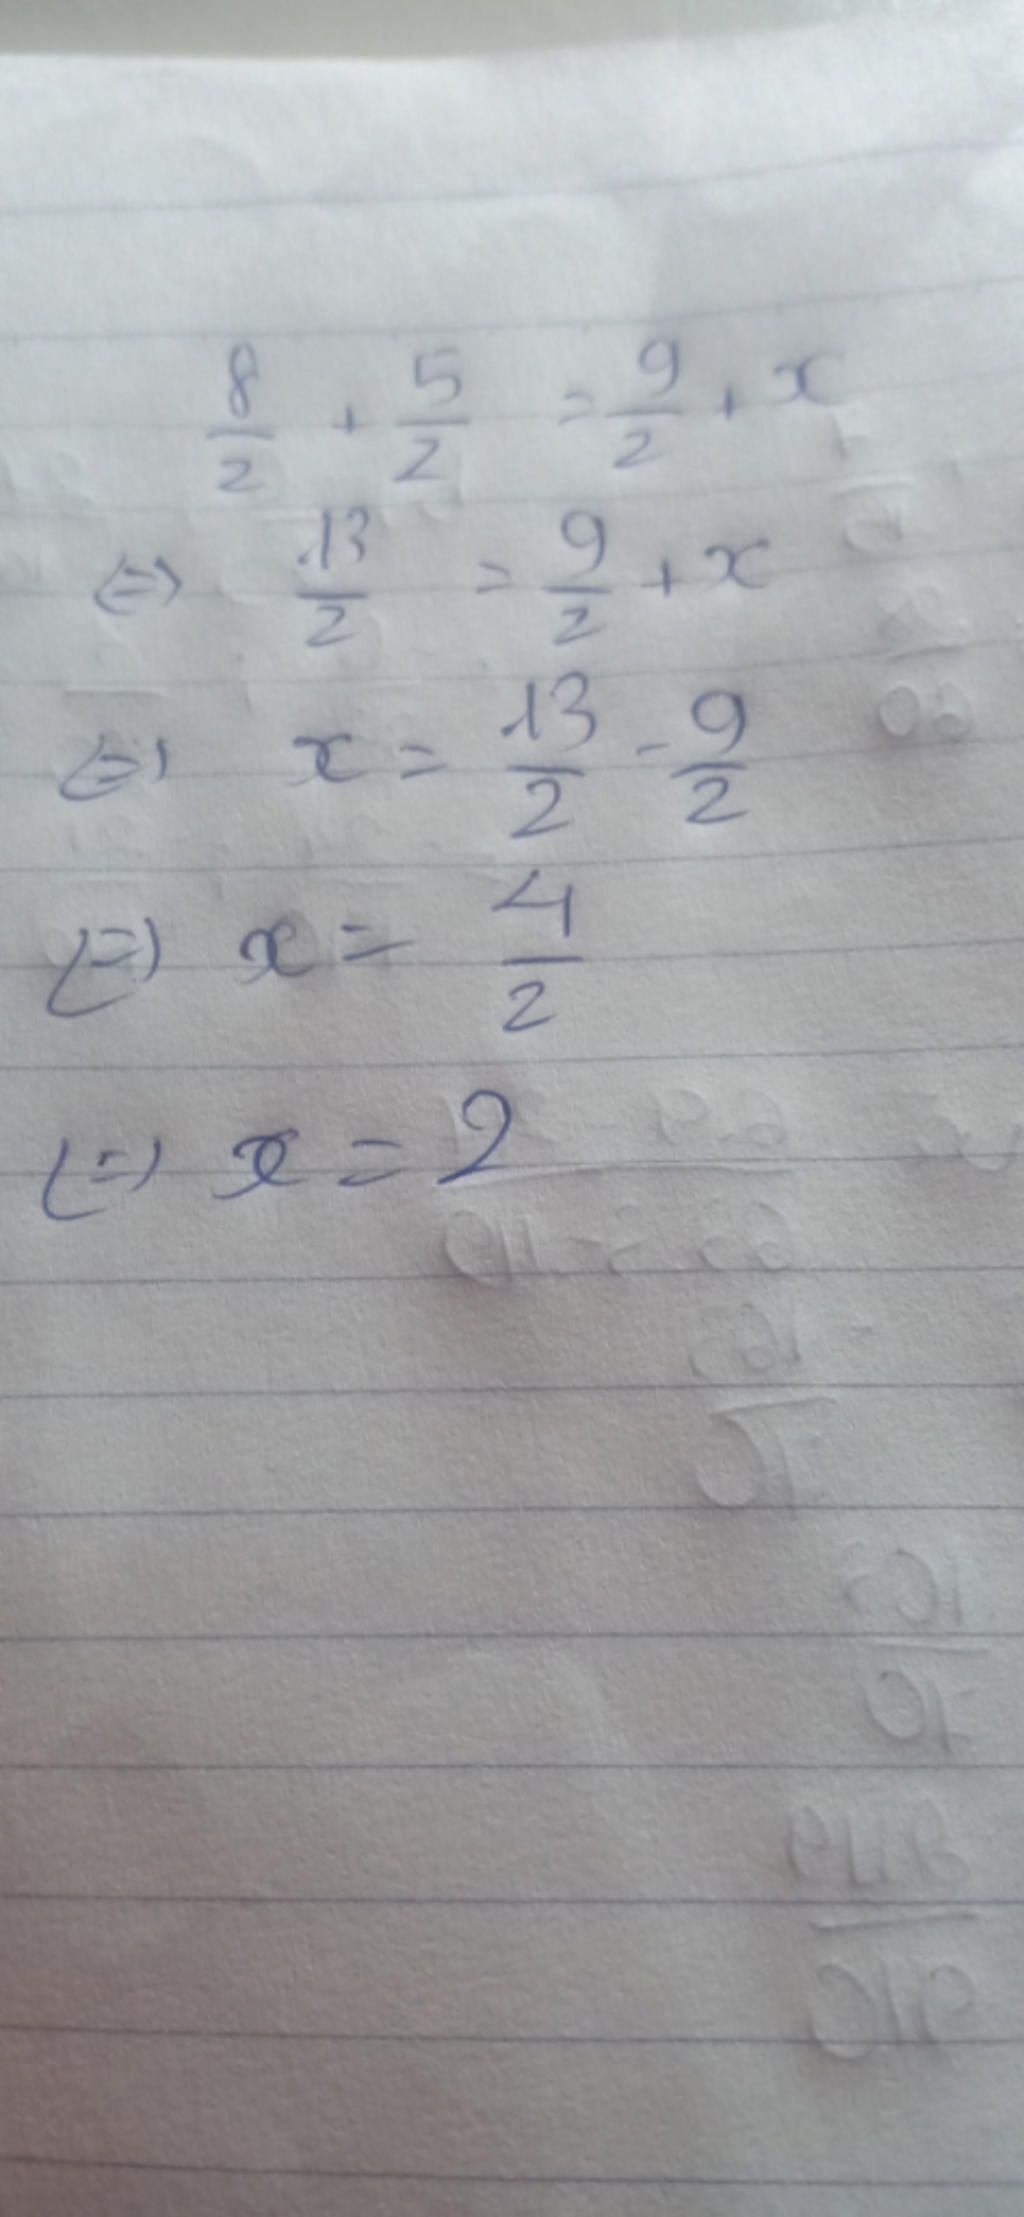 8/2 + 5/2 = 9/2 + x
⇔ 13/2 = 9/2 + x
⇔ x = 13/2 - 9/2
⇔ x = 4/2
⇔ x = 2